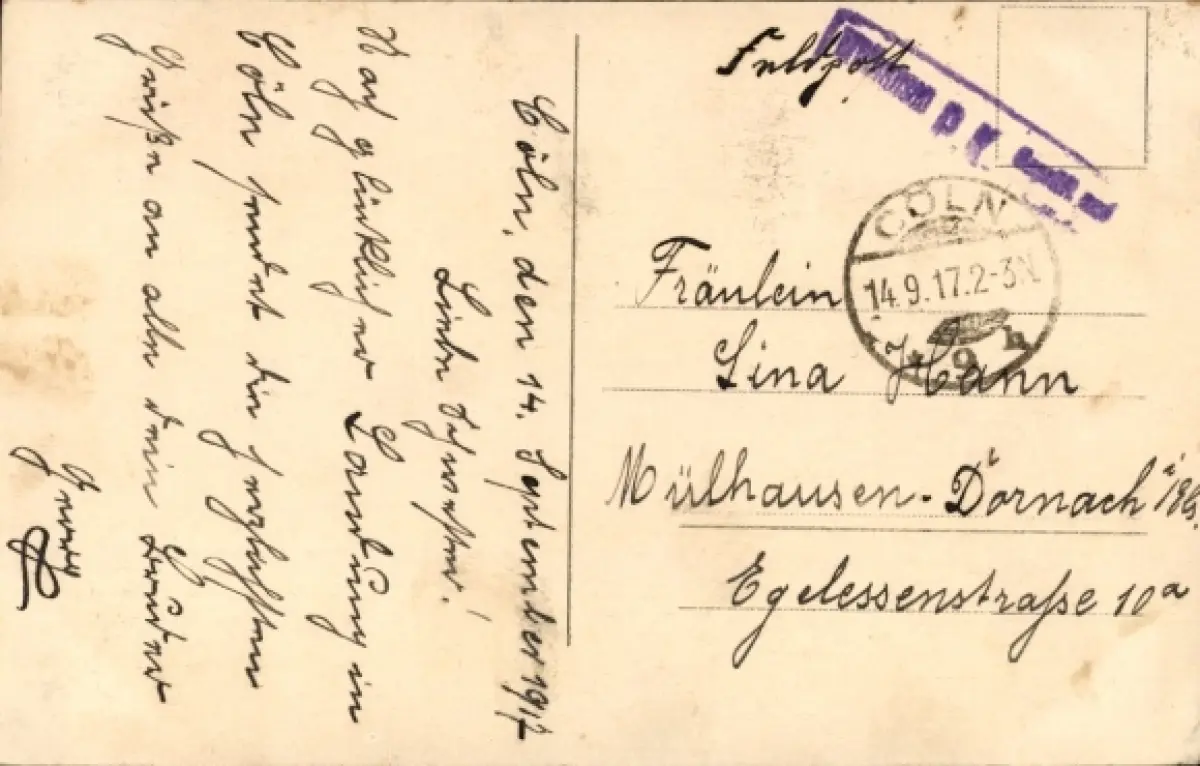 Cöln, den 14. September 1917
Liebe Schwester!
Nach glücklicher Landung in
Cöln sendet dir herzlichsten
Grüße an alle dein Bruder
Georg
Feldpost
CÖLN
14.9.17.2-3N
* 9 h
Fräulein
Lina Hann
Mülhausen-Dornach i/Els.
Egelessenstraße 10a